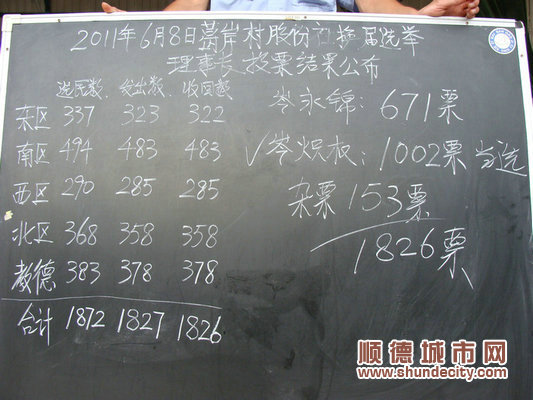 2011年6月8日葛岸村股份社换届选举
理事长投票结果公布
选民数 发出数 收回数
东区 337 323 322
南区 494 483 483
西区 290 285 285
北区 368 358 358
教德 383 378 378
合计 1872 1827 1826
岑永锦: 671票
√岑炽权: 1002票 当选
杂票 153票
1826票
顺德城市网
www.shundecity.com